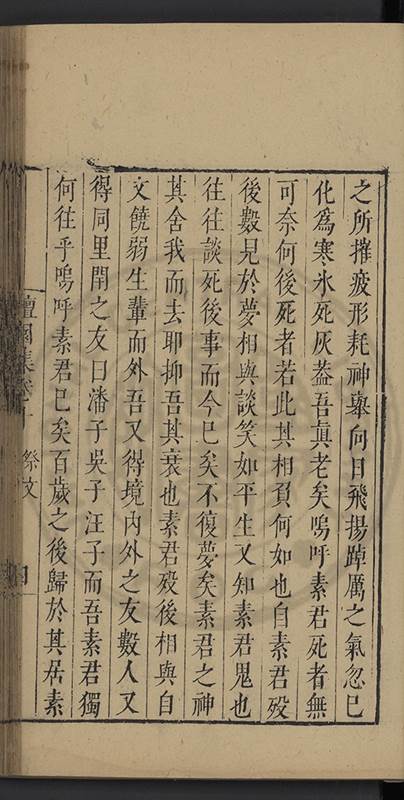 之所摧疲形耗神舉向日飛揚踔厲之氣忽已
化為寒氷死灰蓋吾真老矣嗚呼素君死者無
可奈何後死者若此其相負何如也自素君歿
後數見於夢相與談笑如平生又知素君鬼也
往往談死後事而今已矣不復夢矣素君之神
其舍我而去耶抑吾其衰也素君歿後相與自
文饒弱生輩而外吾又得境內外之友數人又
得同里閈之友曰潘子吳子汪子而吾素君獨
何往乎嗚呼素君已矣百歲之後歸於其居素
集卷十 祭文 四